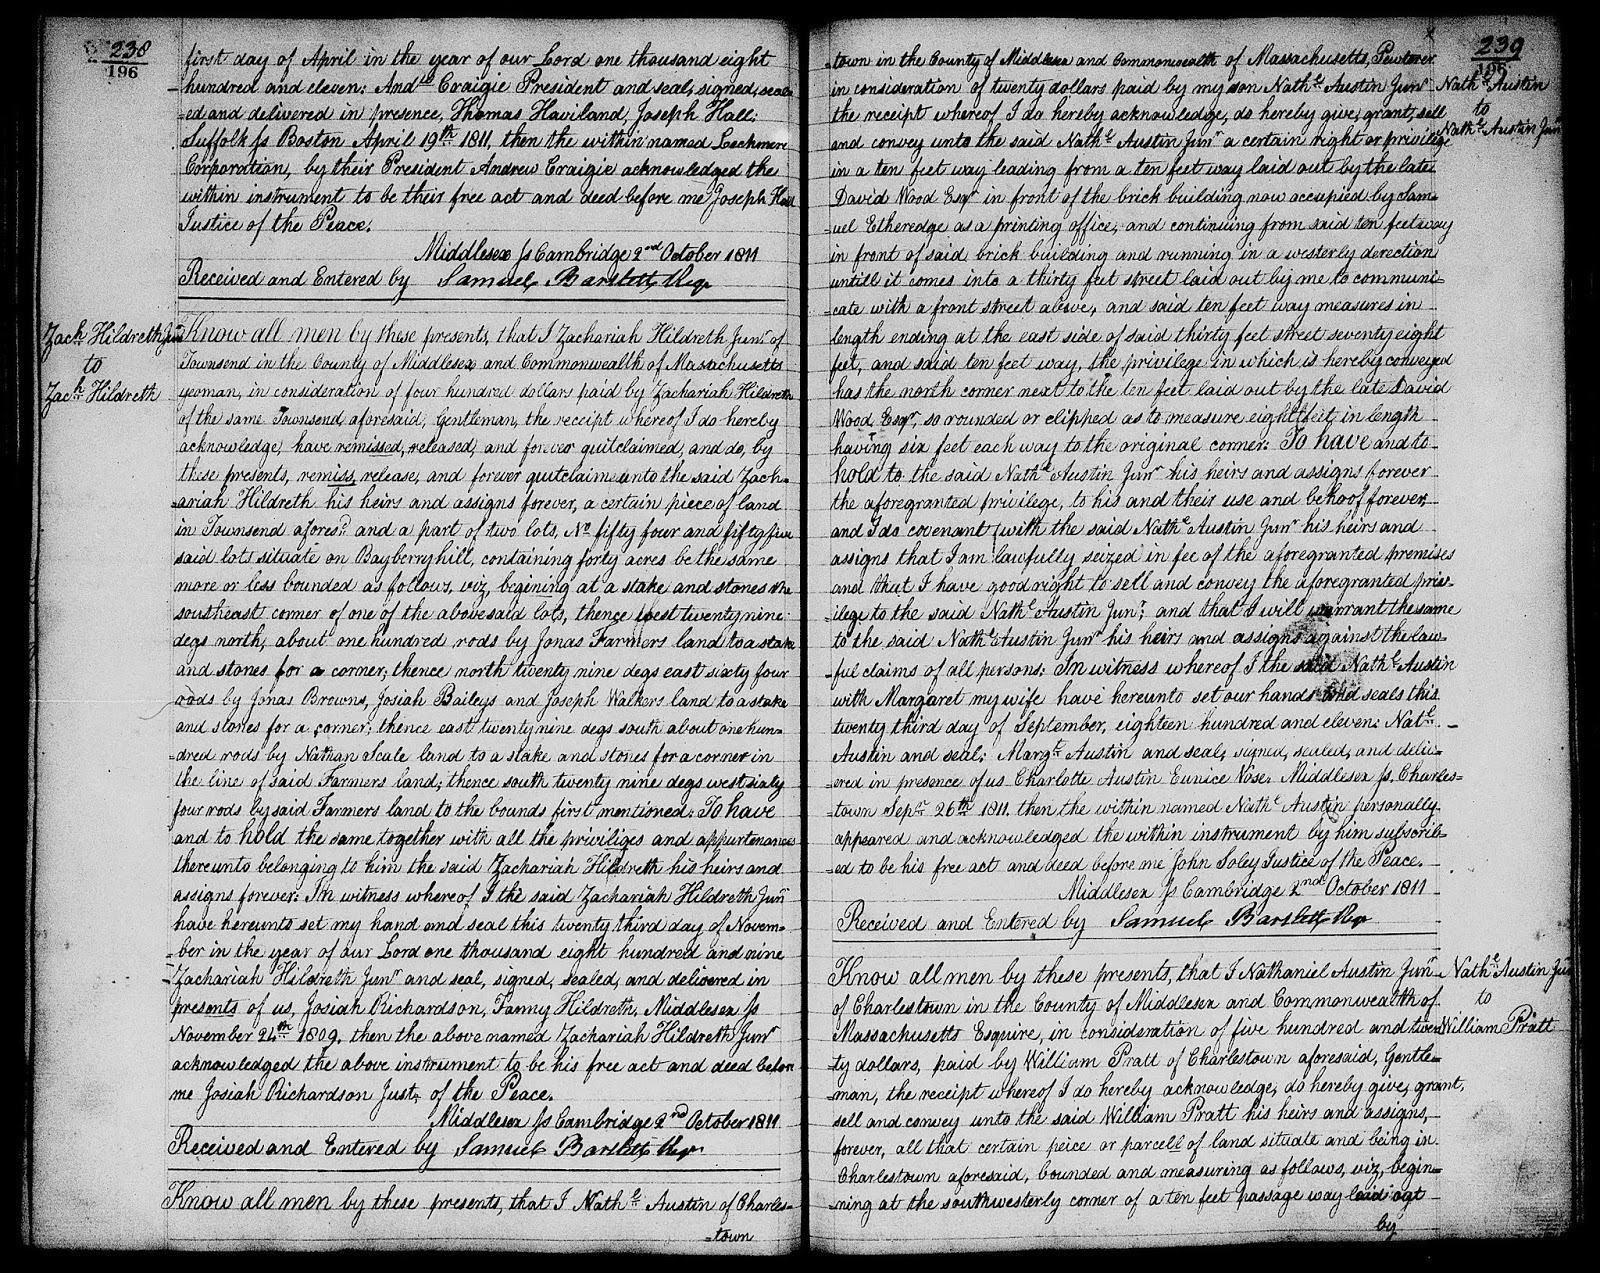 238
196
first day of April in the year of our Lord one thousand eight
hundred and eleven: And.w Craigie President and seal, signed, seal=
=ed and delivered in presence, Thomas Haviland, Joseph Hall;
Suffolk Ss Boston April 19th 1811, then the within named Lechmere
Corporation, by their President Andrew Craigie acknowledged the
within instrument to be their free act and deed before me Joseph Hall
Justice of the Peace.
Middlesex Ss Cambridge 2nd October 1811
Received and Entered by Samuel Bartlett Reg
Zach. Hildreth Junr
to
Zach. Hildreth
Know all men by these presents, that I Zachariah Hildreth Junr. of
Townsend in the County of Middlesex and Commonwealth of Massachusetts
yeoman, in consideration of four hundred dollars paid by Zachariah Hildreth
of the same Townsend, aforesaid, Gentleman, the receipt whereof I do hereby
acknowledge, have remissed, released, and forever quitclaimed, and do, by
these presents, remiss, release, and forever quitclaim unto the said Zach=
=ariah Hildreth his heirs and assigns forever, a certain piece of land
in Townsend afores.d and a part of two lots, No fifty four and fifty five
said lots situate on Bayberryhill, containing forty acres be the same
more or less bounded as follows, viz, begining at a stake and stones the
southeast corner of one of the abovesaid lots, thence west twenty nine
degs north, about one hundred rods by Jonas Farmers land to a stake
and stones for a corner; thence north twenty nine degs east sixty four
rods by Jonas Browns, Josiah Baileys and Joseph Walkers land to a stake
and stones for a corner; thence east twenty nine degs south about one hun=
=dred rods by Nathan Scale land to a stake and stones for a corner in
the line of said Farmers land; thence south twenty nine degs west sixty
four rods by said Farmers land to the bounds first mentioned: To have
and to hold the same together with all the priviliges and appurtenances
thereunto belonging to him the said Zachariah Hildreth his heirs and
assigns forever: In witness whereof I the said Zachariah Hildreth Junr
have hereunto set my hand and seal this twenty third day of Novem=
=ber in the year of our Lord one thousand eight hundred and nine
Zachariah Hildreth Junr and seal, signed, sealed, and delivered in
presents of us, Josiah Richardson, Fanny Hildreth. Middlesex Ss
November 24th 1809, then the above named Zachariah Hildreth Junr
acknowledged the above instrument to be his free act and deed before
me Josiah Richardson Just. of the Peace.
Middlesex Ss Cambridge 2nd October 1811
Received and Entered by Samuel Bartlett Reg
Know all men by these presents, that I Nath.l Austin of Charles=
=town
239
196
Nath.l Austin
to
Nath.l Austin Junr
=town in the County of Middlesex and Commonwealth of Massachusetts, Pewterer
in consideration of twenty dollars paid by my son Nath.l Austin Junr
the receipt whereof I do hereby acknowledge, do hereby give, grant, sell
and convey unto the said Nath.l Austin Junr a certain right or privilige
in a ten feet way leading from a ten feet way laid out by the late
David Wood Esqr in front of the brick building now occupied by Sam=
=uel Etheredge as a printing office, and continuing from said ten feet way
in front of said brick building and running in a westerly derection
untill it comes into a thirty feet street laid out by me to communi=
=cate with a front street above, and said ten feet way measures in
length ending at the east side of said thirty feet street seventy eight
feet, and said ten feet way, the privilege in which is hereby conveyed
has the north corner next to the ten feet laid out by the late David
Wood Esqr, so rounded or clipped as to measure eight feet in length
having six feet each way to the original corner: To have and to
hold to the said Nath.l Austin Junr his heirs and assigns forever
the aforegranted privilege, to his and their use and behoof forever,
and I do covenant with the said Nath.l Austin Junr his heirs and
assigns that I am lawfully seized in fee of the aforegranted premises
and that I have good right to sell and convey the aforegranted priv=
ilege to the said Nath.l Austin Junr; and that I will warrant the same
to the said Nath.l Austin Junr his heirs and assigns against the law=
=ful claims of all persons: In witness whereof I the said Nath.l Austin
with Margaret my wife have hereunto set our hands and seals this
twenty third day of September, eighteen hundred and eleven: Nat.l
Austin and seal; Marg.t Austin and seal, signed, sealed, and deliv=
=ered in presence of us Charlotte Austin Eunice Nose. Middlesex Ss. Charles=
=town Sep.r 26th 1811. then the within named Nath.l Austin personally
appeared and acknowledged the within instrument by him subscrib=
=ed to be his free act and deed before me John Soley Justice of the Peace.
Middlesex Ss Cambridge 2nd October 1811
Received and Entered by Samuel Bartlett Reg
Nath.l Austin Junr
to
William Pratt
Know all men by these presents, that I Nathaniel Austin Junr
of Charlestown in the County of Middlesex and Commonwealth of
Massachusetts Esquire, in consideration of five hundred and twen=
ty dollars, paid by William Pratt of Charlestown aforesaid, Gentle=
=man, the receipt whereof I do hereby acknowledge, do hereby give, grant,
sell and convey unto the said William Pratt his heirs and assigns,
forever, all that certain peice or parcell of land situate and being in
Charlestown aforesaid, bounded and measuring as follows, viz, begin=
=ning at the southwesterly corner of a ten feet passage way laid out
by